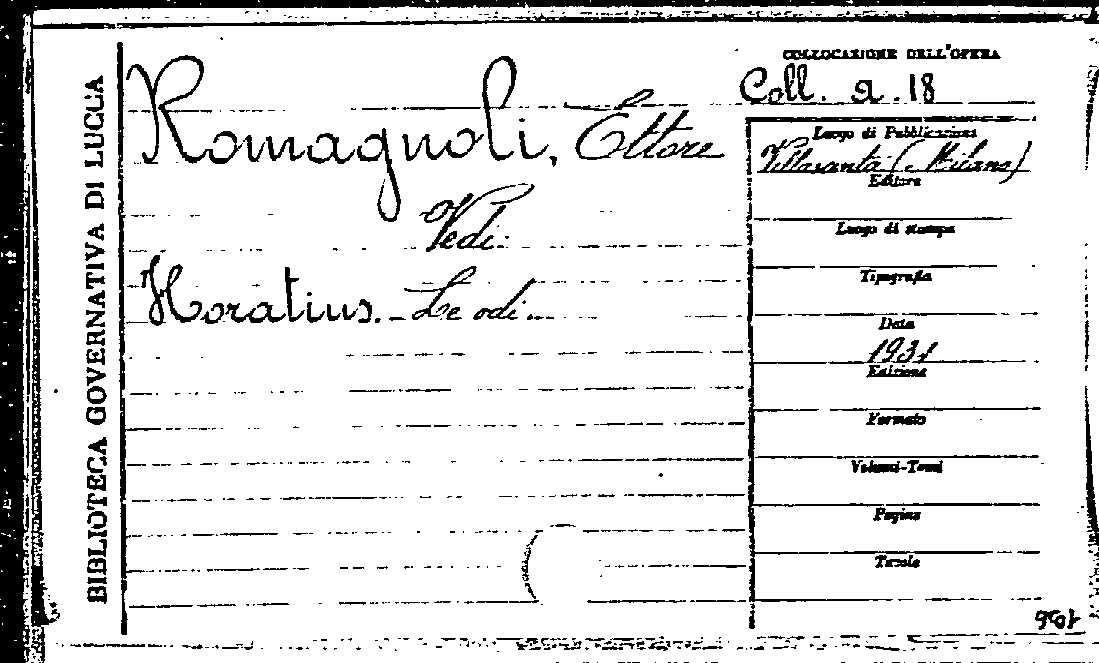 BIBLIOTECA GOVERNATIVA DI LUCCA
Romagnoli, Ettore
Vedi:
Horatius. - Le odi...
COLLOCAZIONE DELL'OPERA
Coll. a. 18
Luogo di Pubblicazione
Villasanta (Milano)
Editore
Luogo di stampa
Tipografia
Data
1931
Edizione
Formato
Volumi-Tomi
Pagine
Tavole